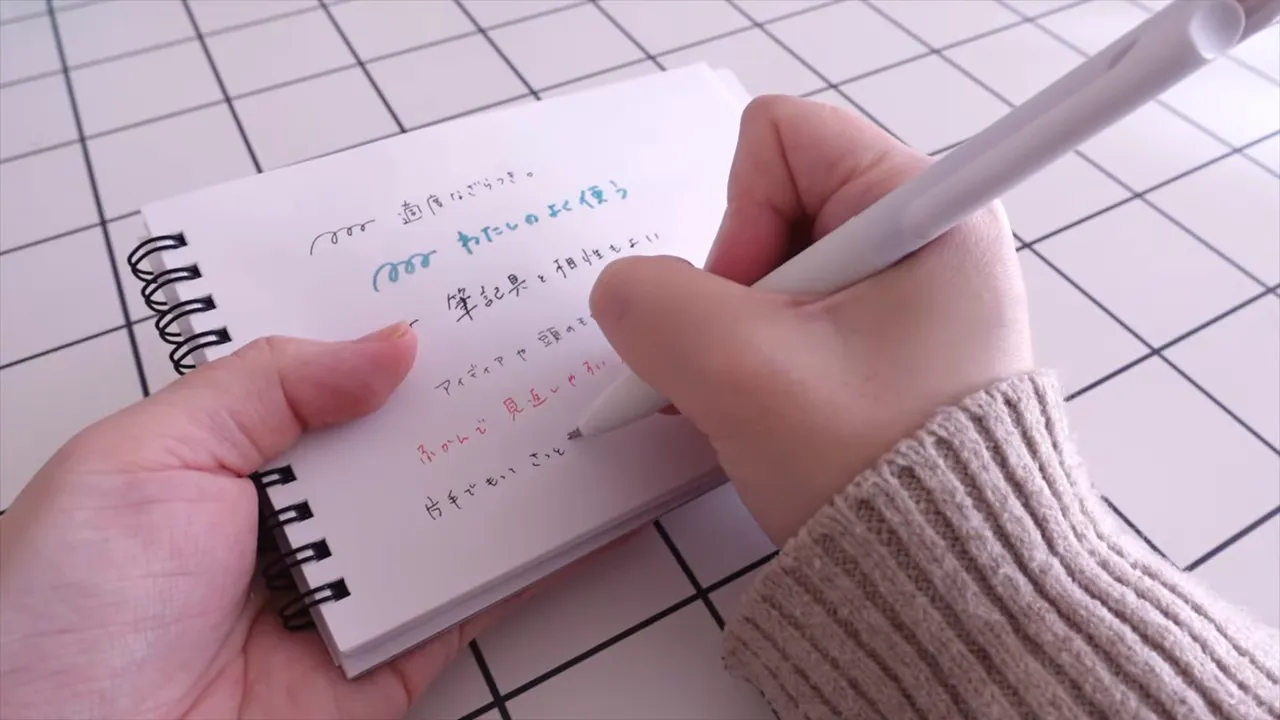 適度なざらつき。
わたしのよく使う
筆記具と相性もよい
アイディアや頭のモ
ふかんで見返しやすい
片手でもって さっと